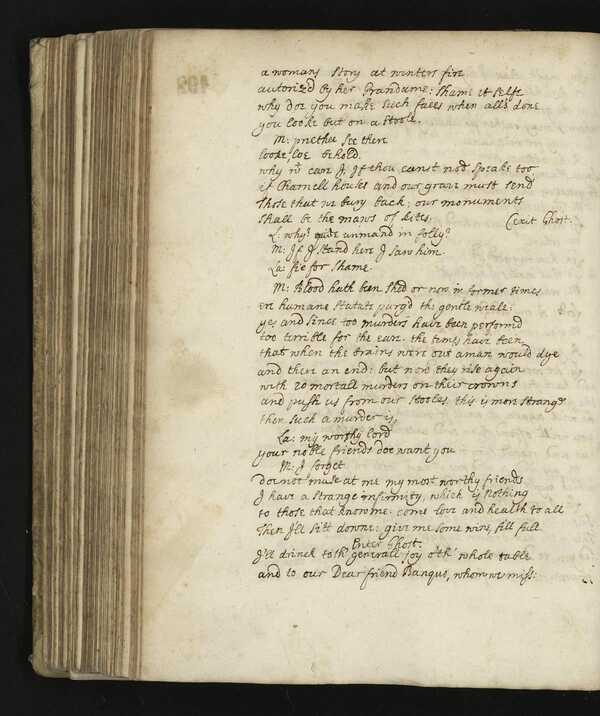 a womans story at winters fire
autorized by her Grandame: shame it selfe
why doe you make such faces when alls done
you looke but on a stoole.
M: prethee see there
looke, loe behold.
why wt care I, If thou canst nod speake too
if Charnell houses and our graves must send
those that wee bury back; our monuments
shall be the maws of kites: (exit Ghost.
L: why? quite unmand in folly?
M: If I stand here I saw him.
La: fie for shame
M: Blood hath been shed or now in former times
ere humane statute purg'd the gentle weale:
yes and since too murders have been performd
too terrible for the eare. the times have been
that when the brains were out a man would dye
and there an end: but now they rise again
with 20 mortall murders on their crowns
and push us from our stooles, this is more strange
then such a murder is,
La: my worthy lord
your noble friends doe want you
M: I forget
doe not muse at me my most worthy friends
I have a strange infirmity, which is nothing
to those that know me. come love and health to all
Then I'll sitt downe: give me some wine, fill full
Enter Ghost.
I'll drinck toth' generall joy oth' whole table
and to our Dear friend Banquo, whom we miss: